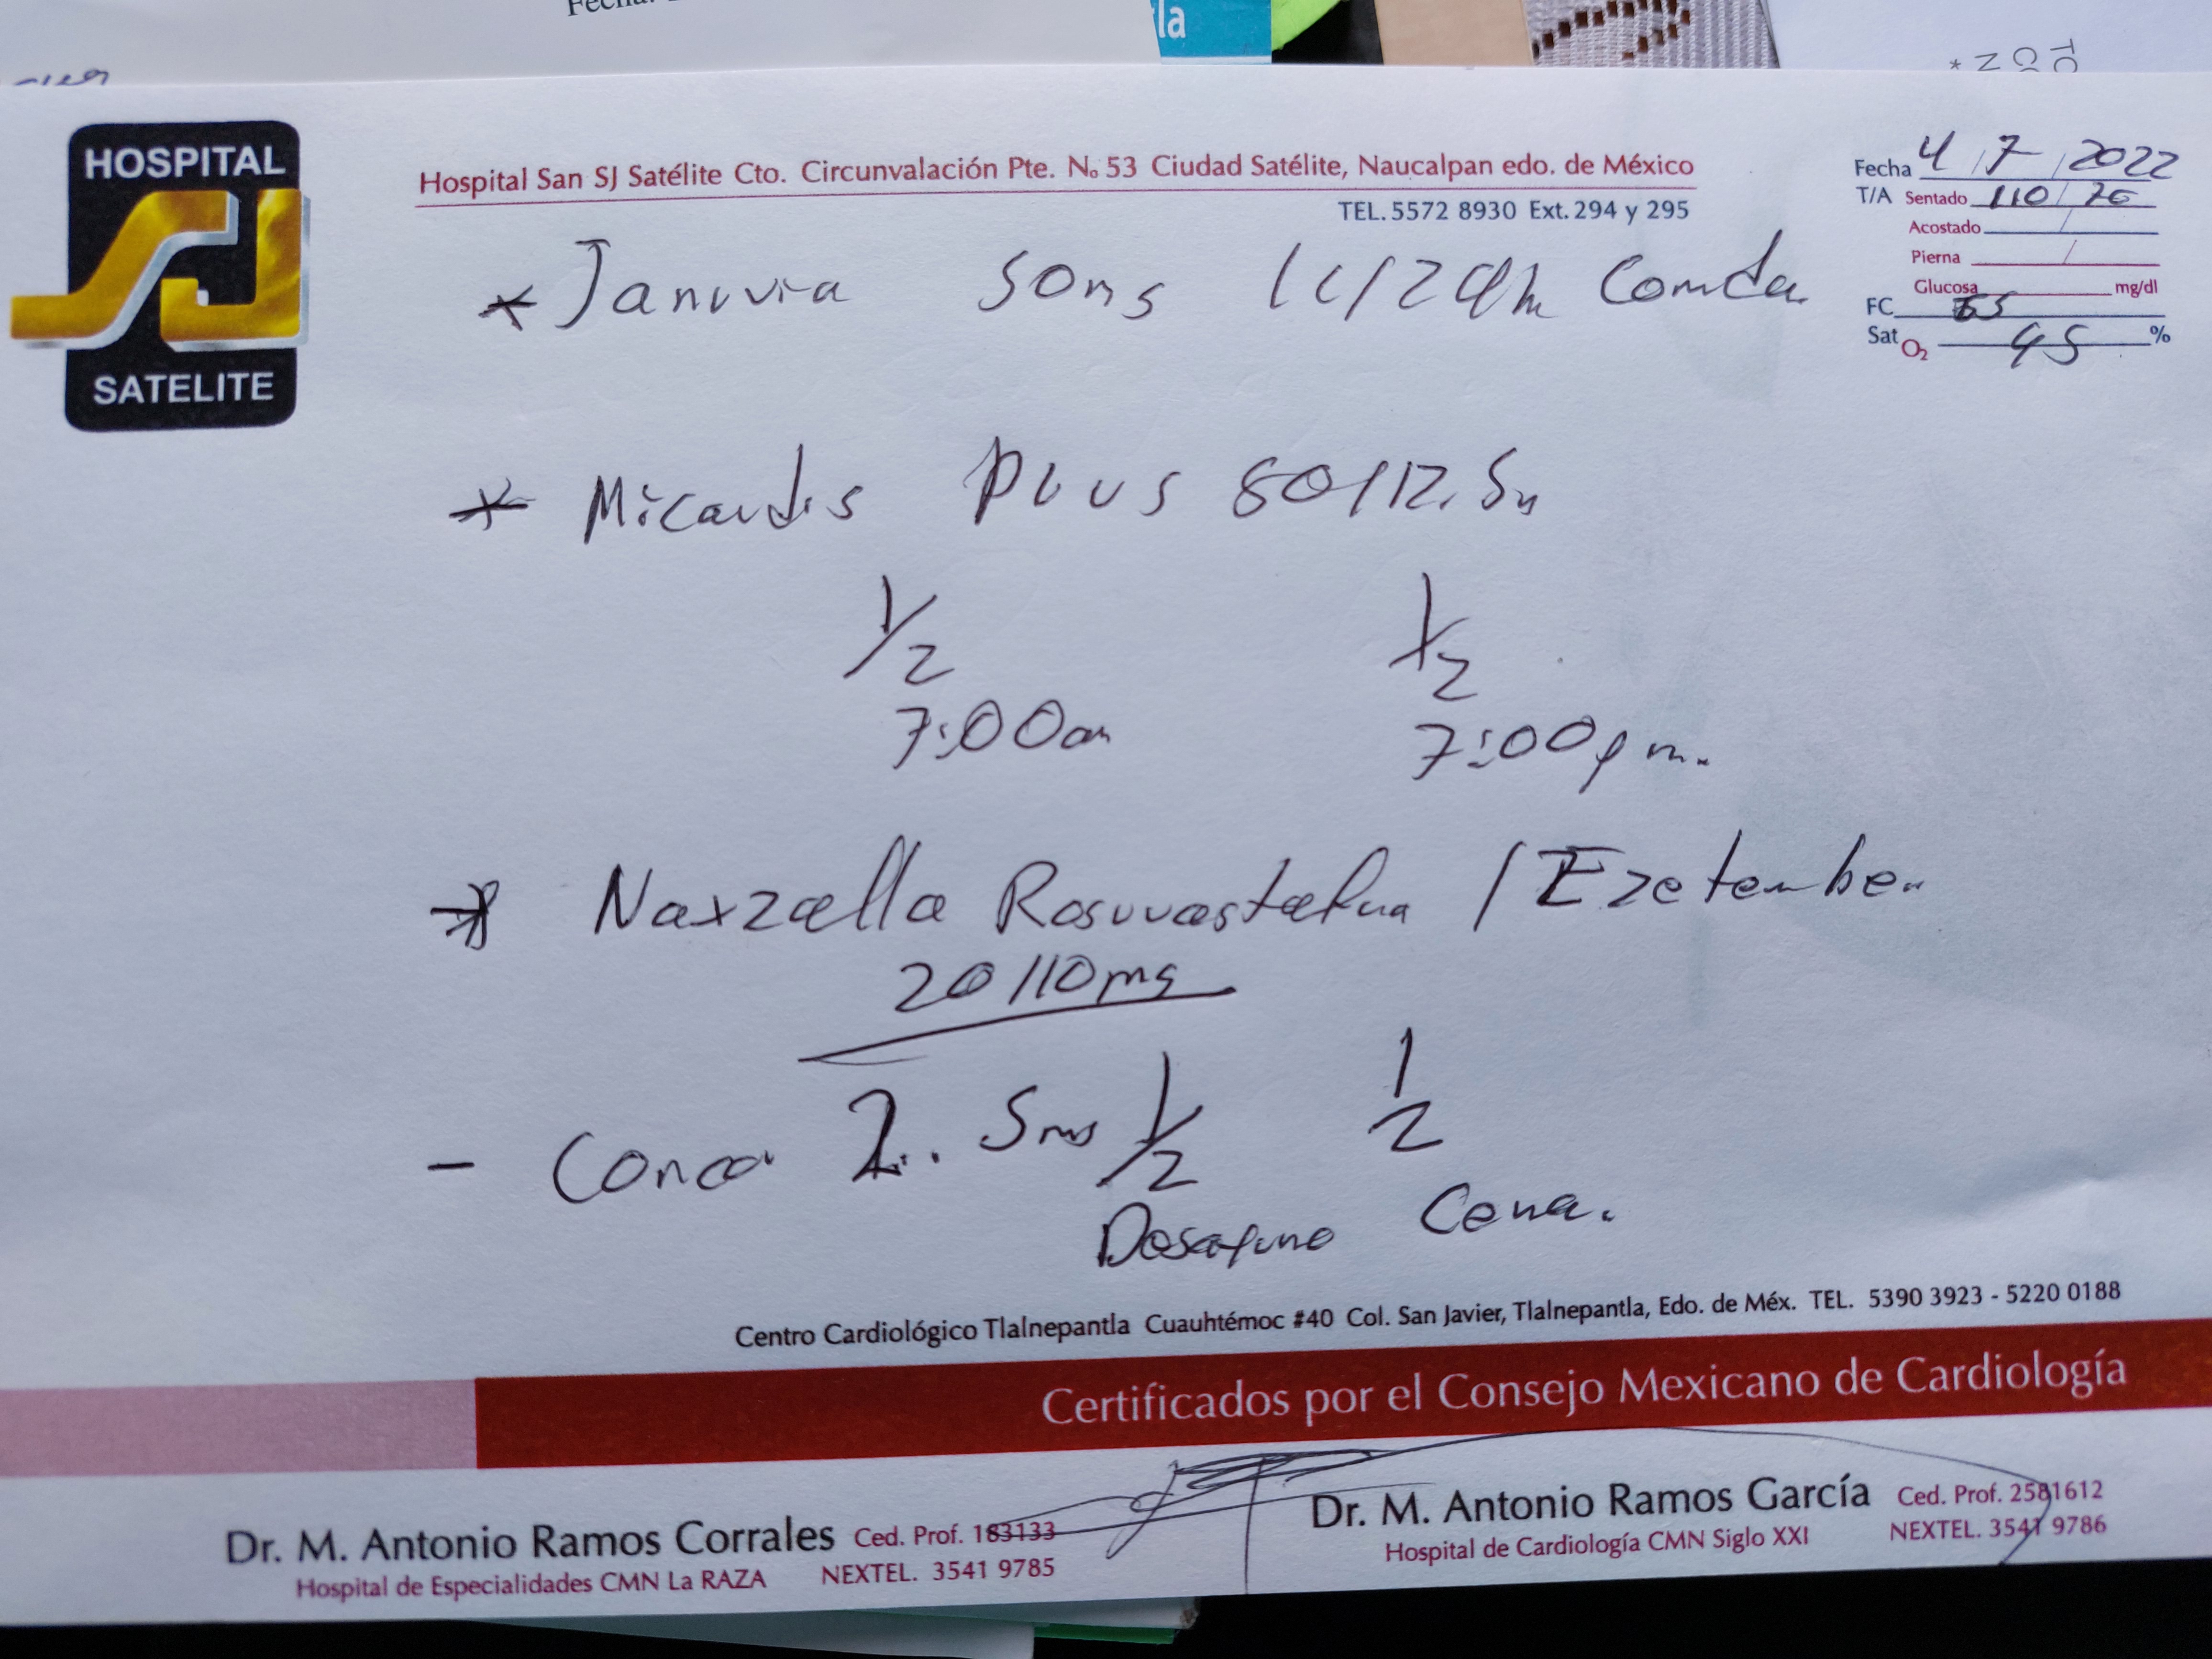 Fecha:
la
HOSPITAL
SJ
SATELITE
Hospital San SJ Satélite Cto. Circunvalación Pte. No 53 Ciudad Satélite, Naucalpan edo. de México
TEL. 5572 8930 Ext. 294 y 295
Fecha 4 / 7 / 2022
T/A Sentado 110 / 70
Acostado /
Pierna /
Glucosa mg/dl
FC 65
Sat O2 95 %
* Januvia 50mg 1c/24h Comida
* Micardis Plus 80/12.5
1/2 1/2
7:00am 7:00pm.
* Naxzalla Rosuvastatina / Ezetembe
20/10mg
- Conco 2.5mg 1/2 1/2
Desayuno Cena.
Centro Cardiológico Tlalnepantla Cuauhtémoc #40 Col. San Javier, Tlalnepantla, Edo. de Méx. TEL. 5390 3923 - 5220 0188
Certificados por el Consejo Mexicano de Cardiología
Dr. M. Antonio Ramos Corrales Ced. Prof. 183133
Hospital de Especialidades CMN La RAZA NEXTEL. 3541 9785
Dr. M. Antonio Ramos García Ced. Prof. 2581612
Hospital de Cardiología CMN Siglo XXI NEXTEL. 3541 9786